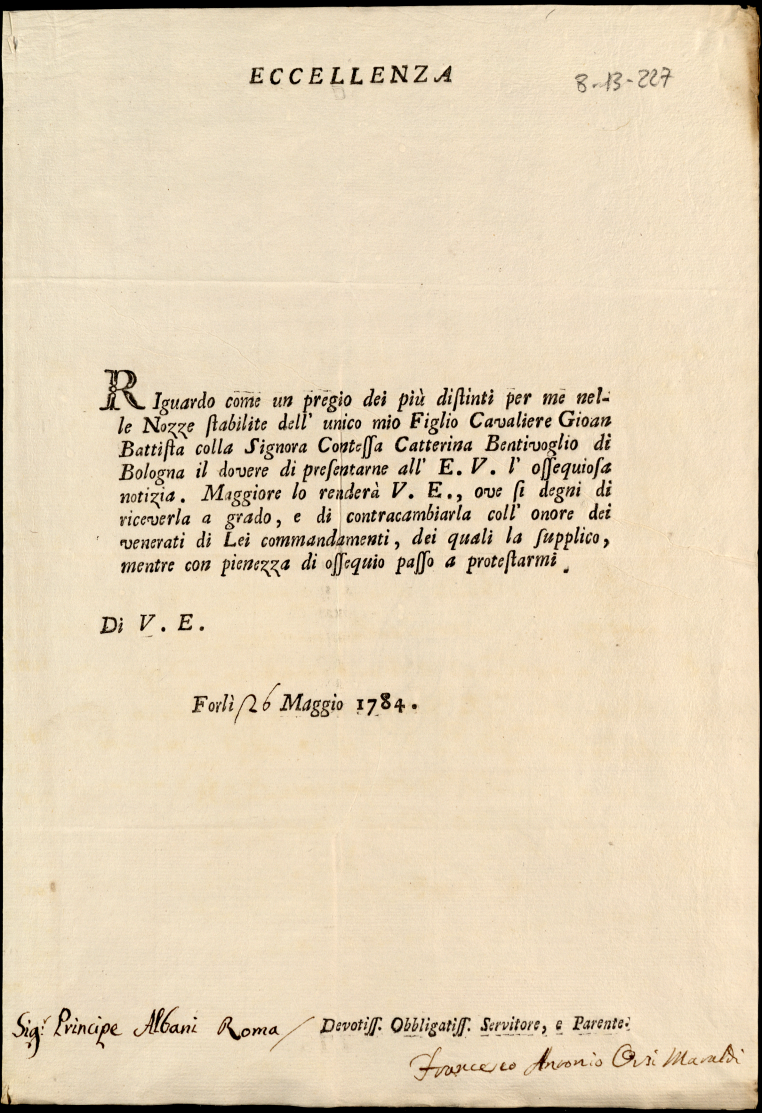 ECCELLENZA
8-13-227
RIguardo come un pregio dei più diſtinti per me nel-
le Nozze ſtabilite dell' unico mio Figlio Cavaliere Gioan
Battiſta colla Signora Conteſſa Catterina Bentivoglio di
Bologna il dovere di preſentarne all' E. V. l' oſſequioſa
notizia. Maggiore lo renderà V. E., ove ſi degni di
riceverla a grado, e di contracambiarla coll' onore dei
venerati di Lei commandamenti, dei quali la ſupplico,
mentre con pienezza di oſſequio paſſo a proteſtarmi.
Di V. E.
Forlì 26 Maggio 1784.
Sigr Principe Albani Roma / Devotiſſ. Obbligatiſſ. Servitore, e Parente.
Francesco Antonio Orsi Maraldi